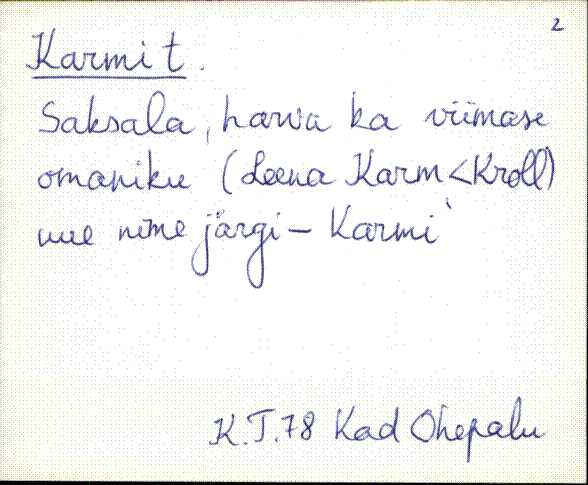 2
Karmi t.
Saksala, harva ka viimase
omaniku (Leena Karm < Kroll)
uue nime järgi - Karmi`
K.T.78 Kad Ohepalu